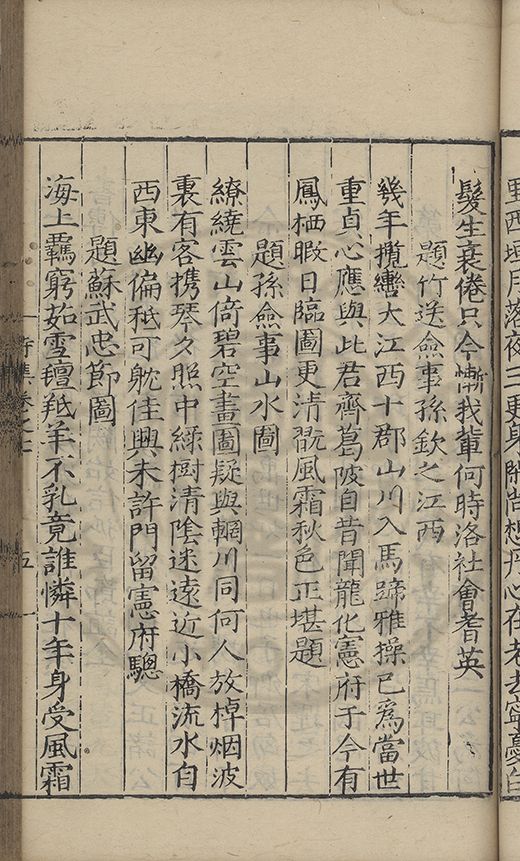 里西垣月落夜三更身閒尚想丹心在老去寧憂白
髮生衰倦只今慚我輩何時洛社會耆英
題竹送僉事孫欽之江西
幾年攬轡大江西十郡山川入馬蹄雅操已為當世
重貞心應與此君齊葛陂自昔聞龍化憲府于今有
鳳栖暇日臨圖更清翫風霜秋色正堪題
題孫僉事山水圖
繚繞雲山倚碧空畫圖疑與輞川同何人放棹烟波
裏有客携琴夕照中綠樹清陰迷遠近小橋流水自
西東幽偏秪可躭佳興未許門留憲府驄
題蘇武忠節圖
海上羈窮茹雪氊羝羊不乳竟誰憐十年身受風霜